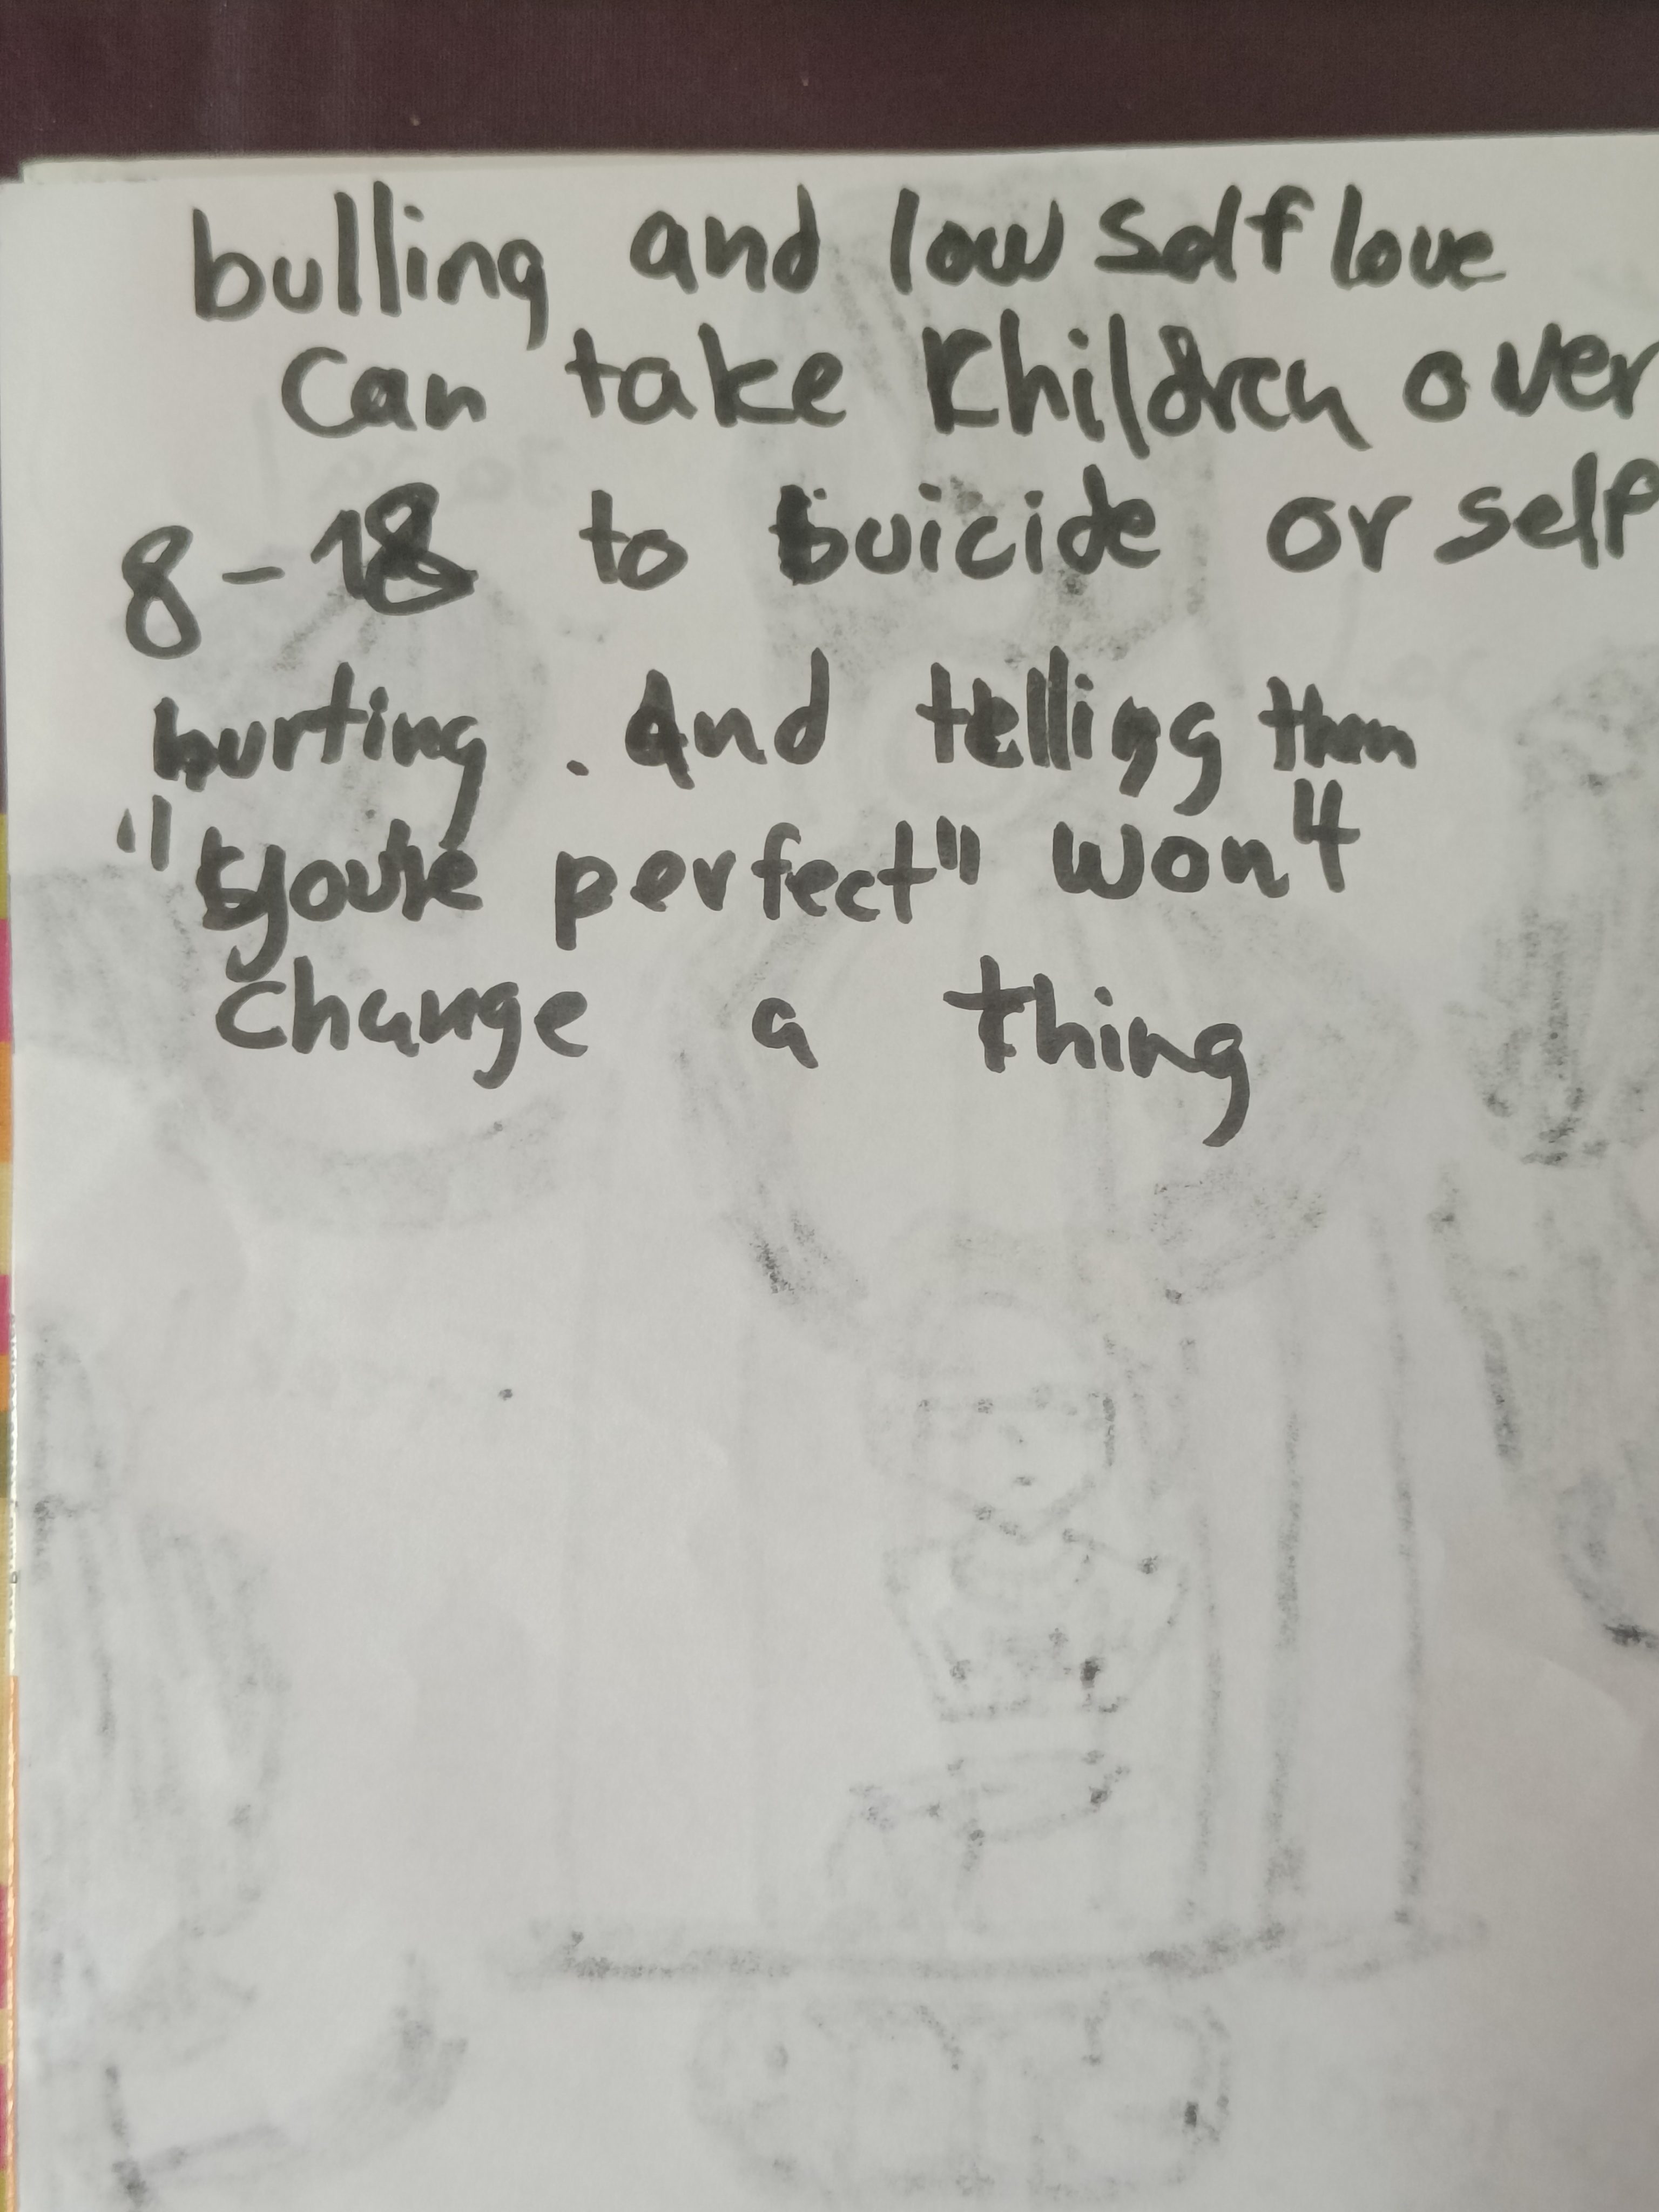 bulling and low self love
can take Khildren over
8-18 to suicide or self
hurting. And telling them
"you're perfect" won't
change a thing